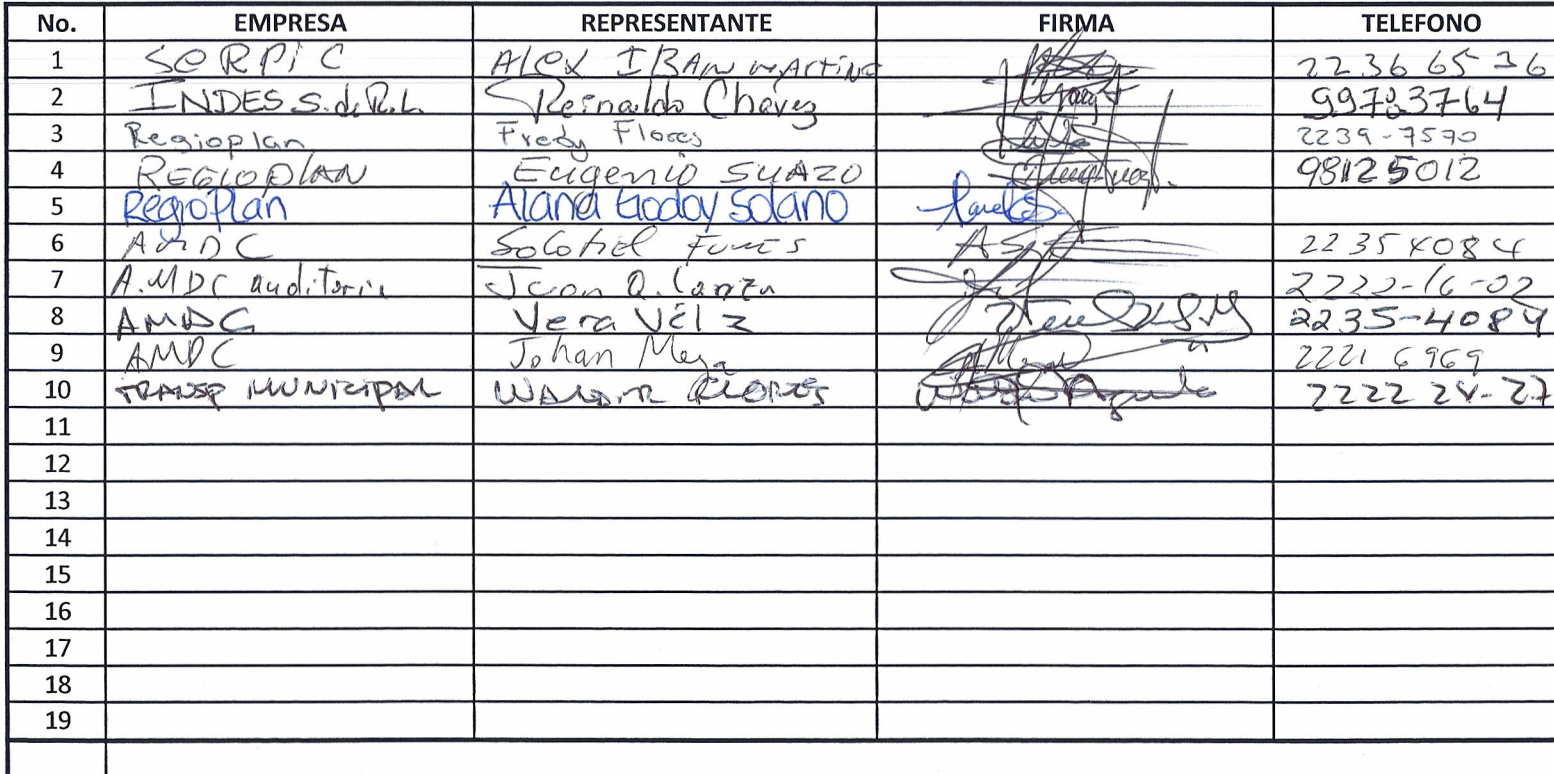 No. EMPRESA REPRESENTANTE FIRMA TELEFONO
1 SERPIC ALEX IBAN MARTINE 2236 65 36
2 INDES S. de R.L. Reinaldo Chávez 9978.3764
3 Regioplan Fredy Flores 2239-7570
4 REGIOPLAN Eugenio SUAZO 98125012
5 RegioPlan Alana Godoy Solano
6 AMDC Funes 22354084
7 A.MDC auditoria Juan 2222-16-02
8 AMDC Vera Vélz 2235-4084
9 AMDC Johan 2221 6969
10 TRANSP MUNICIPAL FLORES 2222 24-27
11
12
13
14
15
16
17
18
19